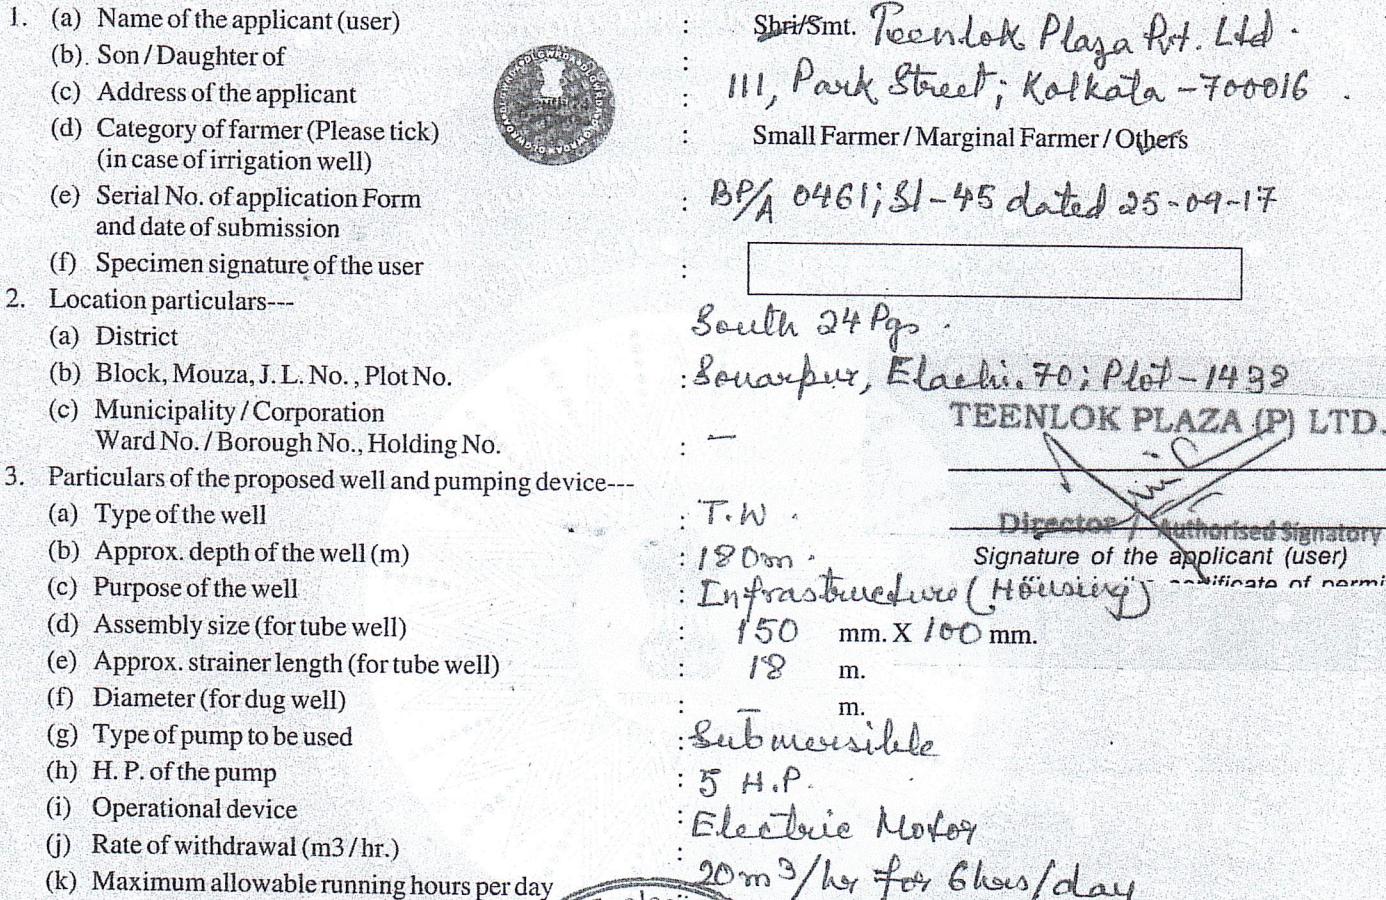 1. (a) Name of the applicant (user) : Shri/Smt. Teenlok Plaza Pvt. Ltd.
(b). Son / Daughter of :
(c) Address of the applicant : 111, Park Street; Kolkata - 700016.
(d) Category of farmer (Please tick) : Small Farmer / Marginal Farmer / Others
(in case of irrigation well)
(e) Serial No. of application Form : BP/A 0461; Sl-45 dated 25-09-17
and date of submission
(f) Specimen signature of the user :
2. Location particulars---
(a) District South 24 Pgs.
(b) Block, Mouza, J. L. No., Plot No. : Sonarpur, Elachi. 70; Plot - 1438
(c) Municipality / Corporation
Ward No. / Borough No., Holding No. : —
TEENLOK PLAZA (P) LTD.
Director / Authorised Signatory
Signature of the applicant (user)
3. Particulars of the proposed well and pumping device---
(a) Type of the well : T.W.
(b) Approx. depth of the well (m) : 180m.
(c) Purpose of the well : Infrastructure (Housing)
(d) Assembly size (for tube well) : 150 mm. X 100 mm.
(e) Approx. strainer length (for tube well) : 18 m.
(f) Diameter (for dug well) : — m.
(g) Type of pump to be used : Submersible
(h) H. P. of the pump : 5 H.P.
(i) Operational device : Electric Motor
(j) Rate of withdrawal (m3 / hr.) :
(k) Maximum allowable running hours per day 20m³/hr for 6hrs/day